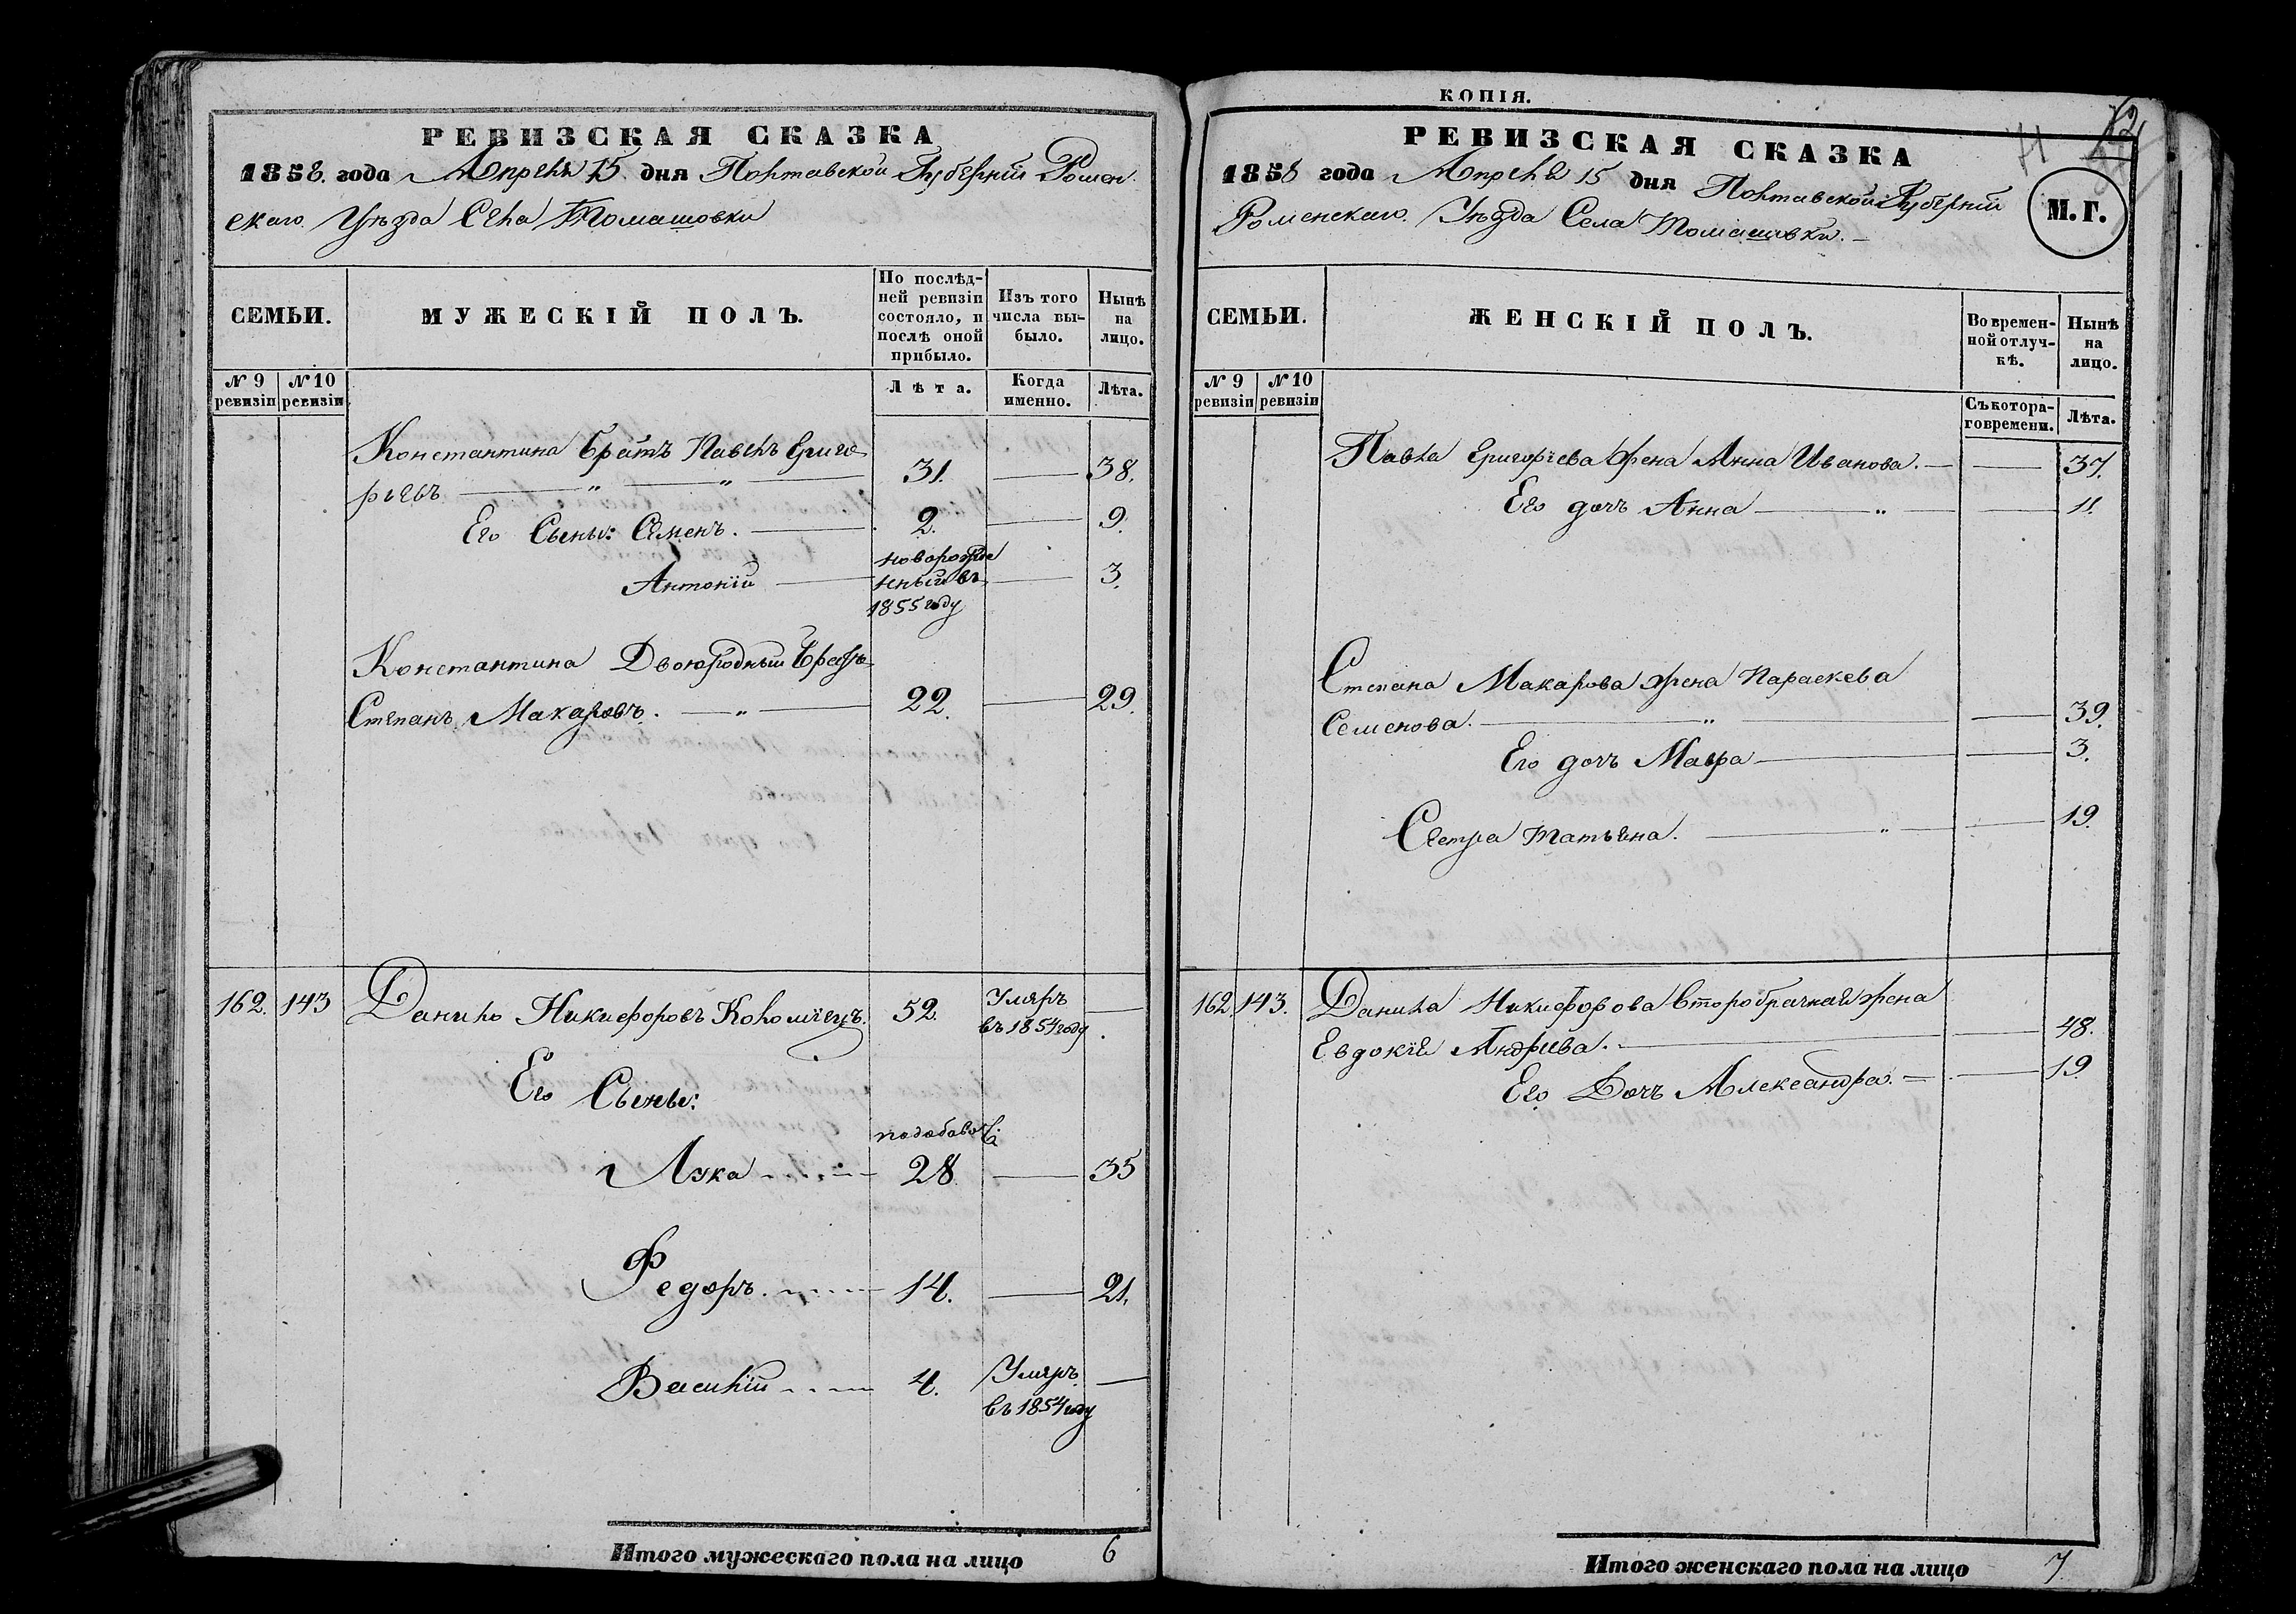 РЕВИЗСКАЯ СКАЗКА
1858. года Апрѣля 15. дня Полтавской Губерніи Ромен
скаго Уѣзда Села Томашовки
СЕМЬИ.
МУЖЕСКІЙ ПОЛЪ.
По послѣд-
ней ревизіи
состояло, и
послѣ оной
прибыло.
Изъ того
числа вы-
было.
Нынѣ
на
лицо.
№ 9
ревизіи
№ 10
ревизіи
Лѣта.
Когда
именно.
Лѣта.
Константина Братъ Павелъ Григо
рьевъ 31. 38.
Его Сыны: Семенъ. 2. 9.
Антоній
новорожде
нный въ
1855 году
3.
Константина Двоюродный Братъ
Степанъ Макаровъ. 22. 29.
162. 143 Данило Никифоровъ Коломіецъ. 52. Умяръ
въ 1854 году
Его Сыны:
Лука 28. 35
Федоръ. 14. 21.
Василій 4. Умяръ
въ 1854 году
Итого мужескаго пола на лицо 6
КОПІЯ.
РЕВИЗСКАЯ СКАЗКА
1858 года Апрѣля 15 дня Полтавской Губерніи
Роменскаго Уѣзда Села Томашовки.
М. Г.
СЕМЬИ.
ЖЕНСКІЙ ПОЛЪ.
Во времен-
ной отлуч-
кѣ.
Нынѣ
на
лицо.
№ 9
ревизіи
№ 10
ревизіи
Съ котора-
го времени.
Лѣта.
Павла Григоріева Жена Анна Иванова. 37.
Его дочь Анна 11.
Степана Макарова жена Параскева
Семенова. 39.
Его дочь Мавра 3.
Сестра Татьяна. 19.
162. 143. Данила Никифорова Второбрачная жена
Евдокія Андрѣева. 48.
Его Дочь Александра. 19.
Итого женскаго пола на лицо 7